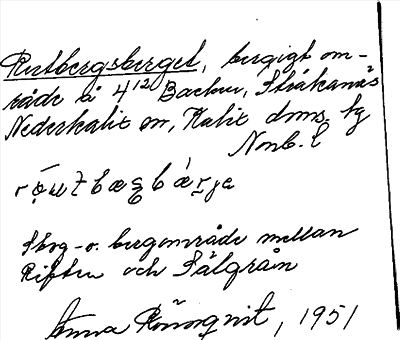 Rutbergsberget, bergigt om-
råde å 4¹² Backen, Stråkanäs
Nederkalix sn, Kalix doms. tg
Nonb. l
Skog- o. bergområde mellan
Riften och Sälgrån
Anna Rönnqvist, 1951